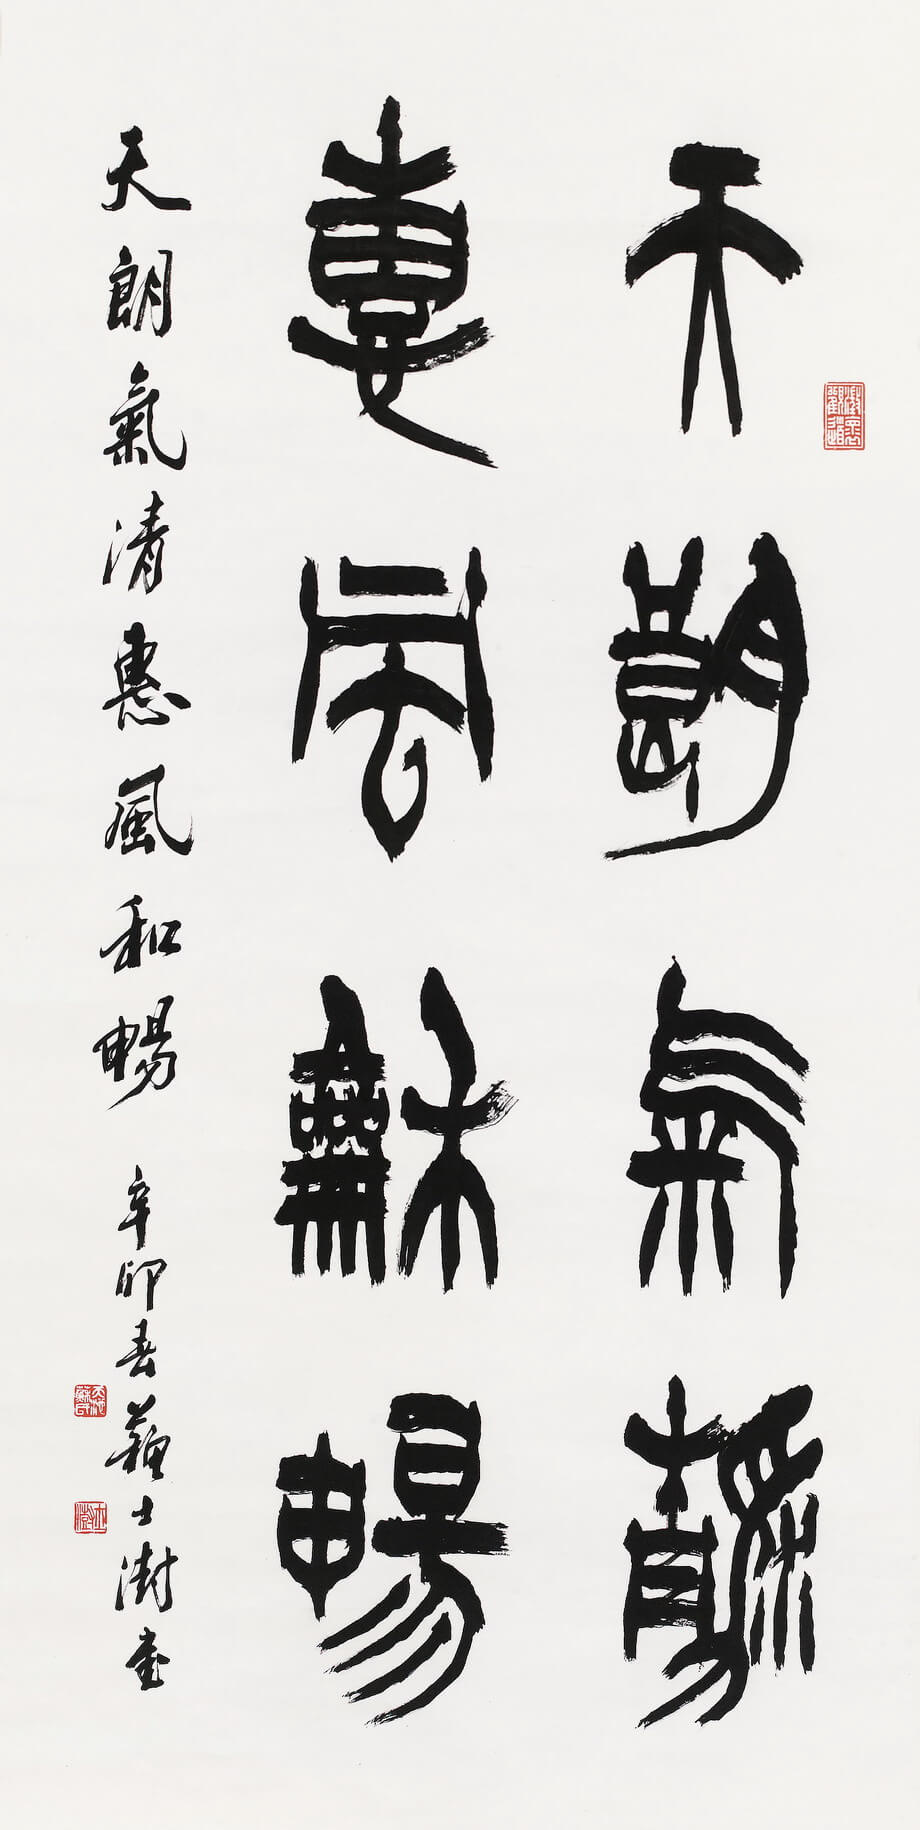 天朗氣清
惠風龢暢
天朗氣清惠風和暢 辛卯春蘇士澍書
士澍